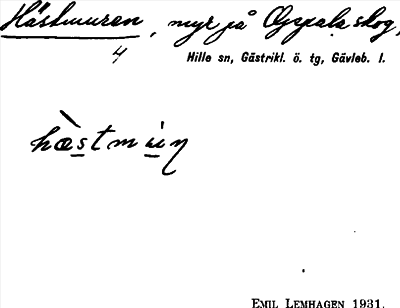 Hästmuren, myr på Oppala skog,
4
Hille sn, Gästrikl. ö. tg, Gävleb. l.
hæ̀stmuͥn
EMIL LEMHAGEN 1931.